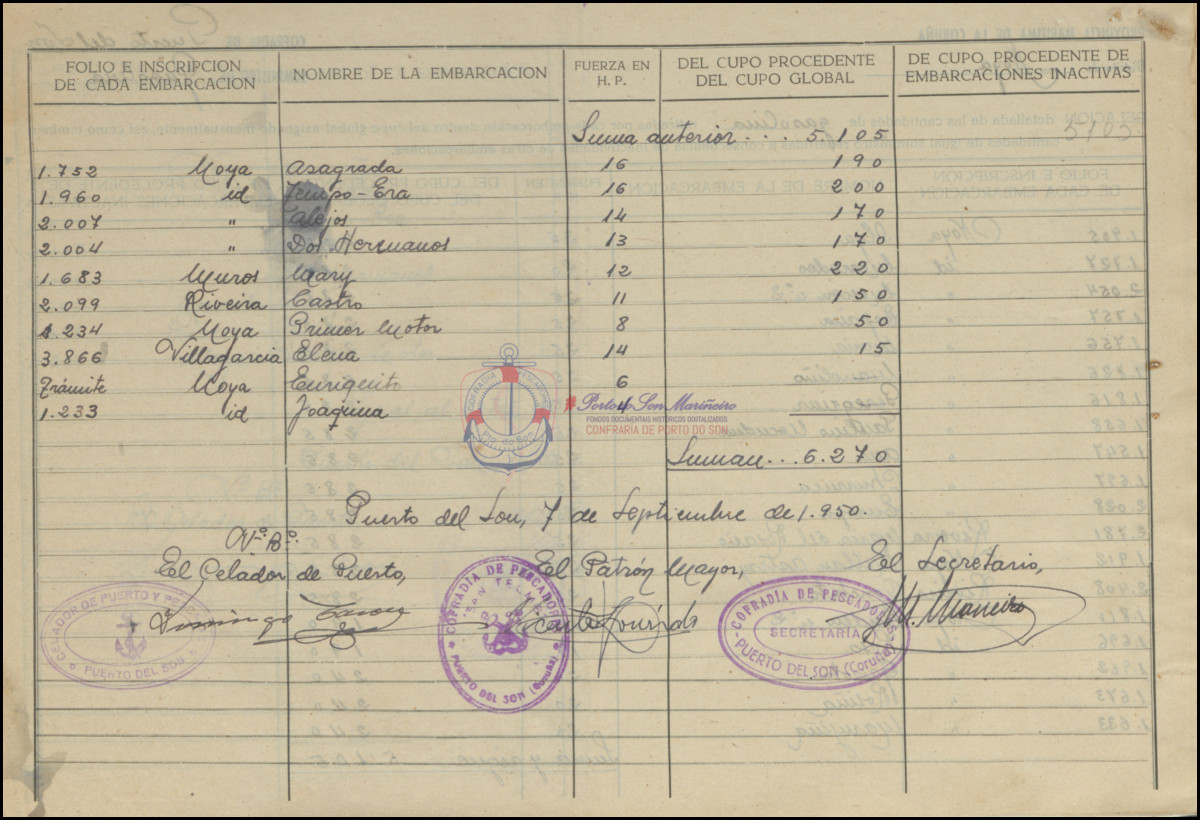 FOLIO E INSCRIPCION DE CADA EMBARCACION | NOMBRE DE LA EMBARCACION | FUERZA EN H. P. | DEL CUPO PROCEDENTE DEL CUPO GLOBAL | DE CUPO PROCEDENTE DE EMBARCACIONES INACTIVAS
Suma anterior.... 5.105
1.752 Noya Asagrada 16 190
1.960 id Tempo-Era 16 200
2.007 " Talejos 14 170
2.004 " Dos Hermanos 13 170
1.683 Muros Mary 12 220
2.099 Riveira Castro 11 150
1.234 Noya Primer Motor 8 50
3.866 Villagarcia Elena 14 15
Trámite Noya Eurigenito 6
1.233 id Joaquina 4
COFRADÍA DE PESCADORES
Pto. do Son
Porto do Son Mariñeiro
FONDOS DOCUMENTAIS HISTÓRICOS DIXITALIZADOS
CONFRARÍA DE PORTO DO SON
Suman... 6.270
Puerto del Son, 7 de Septiembre de 1.950.
Vº. Bº.
El Celador de Puerto, El Patrón Mayor, El Secretario,
CELADOR DE PUERTO Y PESCA
PUERTO DEL SON
Domingo
COFRADÍA DE PESCADORES
SAN TELMO
PUERTO DEL SON (Coruña)
COFRADÍA DE PESCADORES
SECRETARIA
PUERTO DEL SON (Coruña)